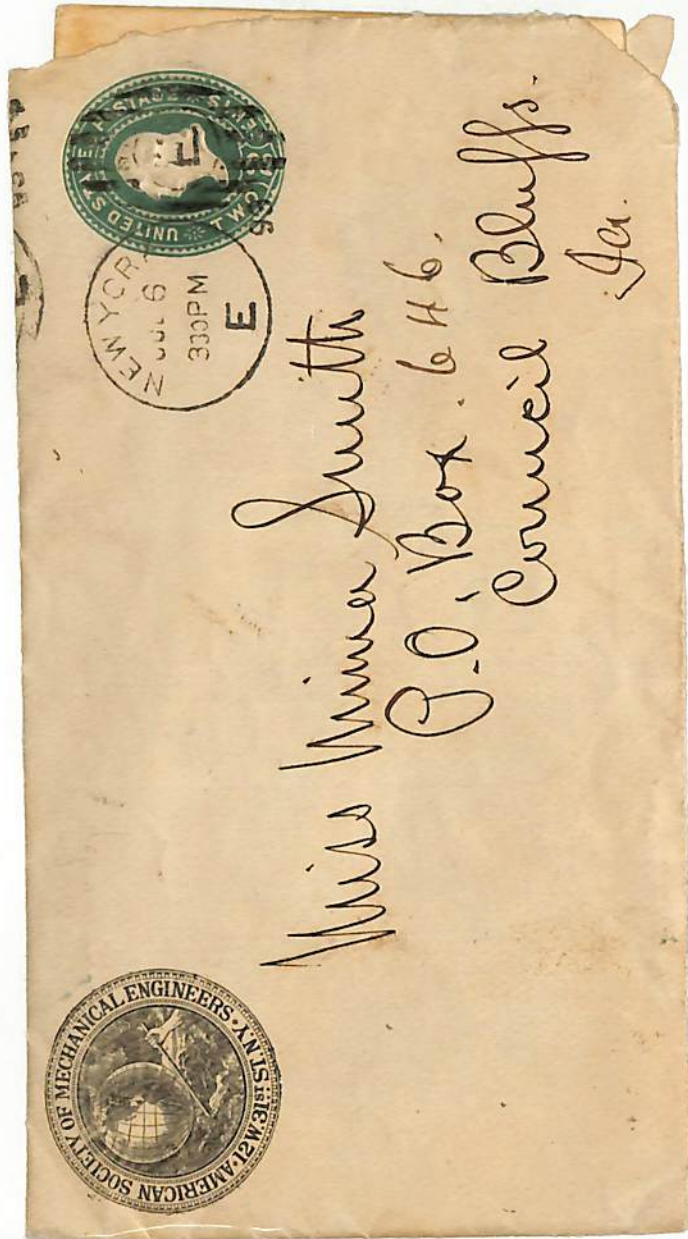 AMERICAN SOCIETY OF MECHANICAL ENGINEERS · 12 W. 31ST ST. N.Y.
UNITED STATES POSTAGE
TWO CENTS
NEW YORK
JUL 6
330PM
E
Miss Minna Smith
P.O. Box. 646.
Council Bluffs.
Ia.